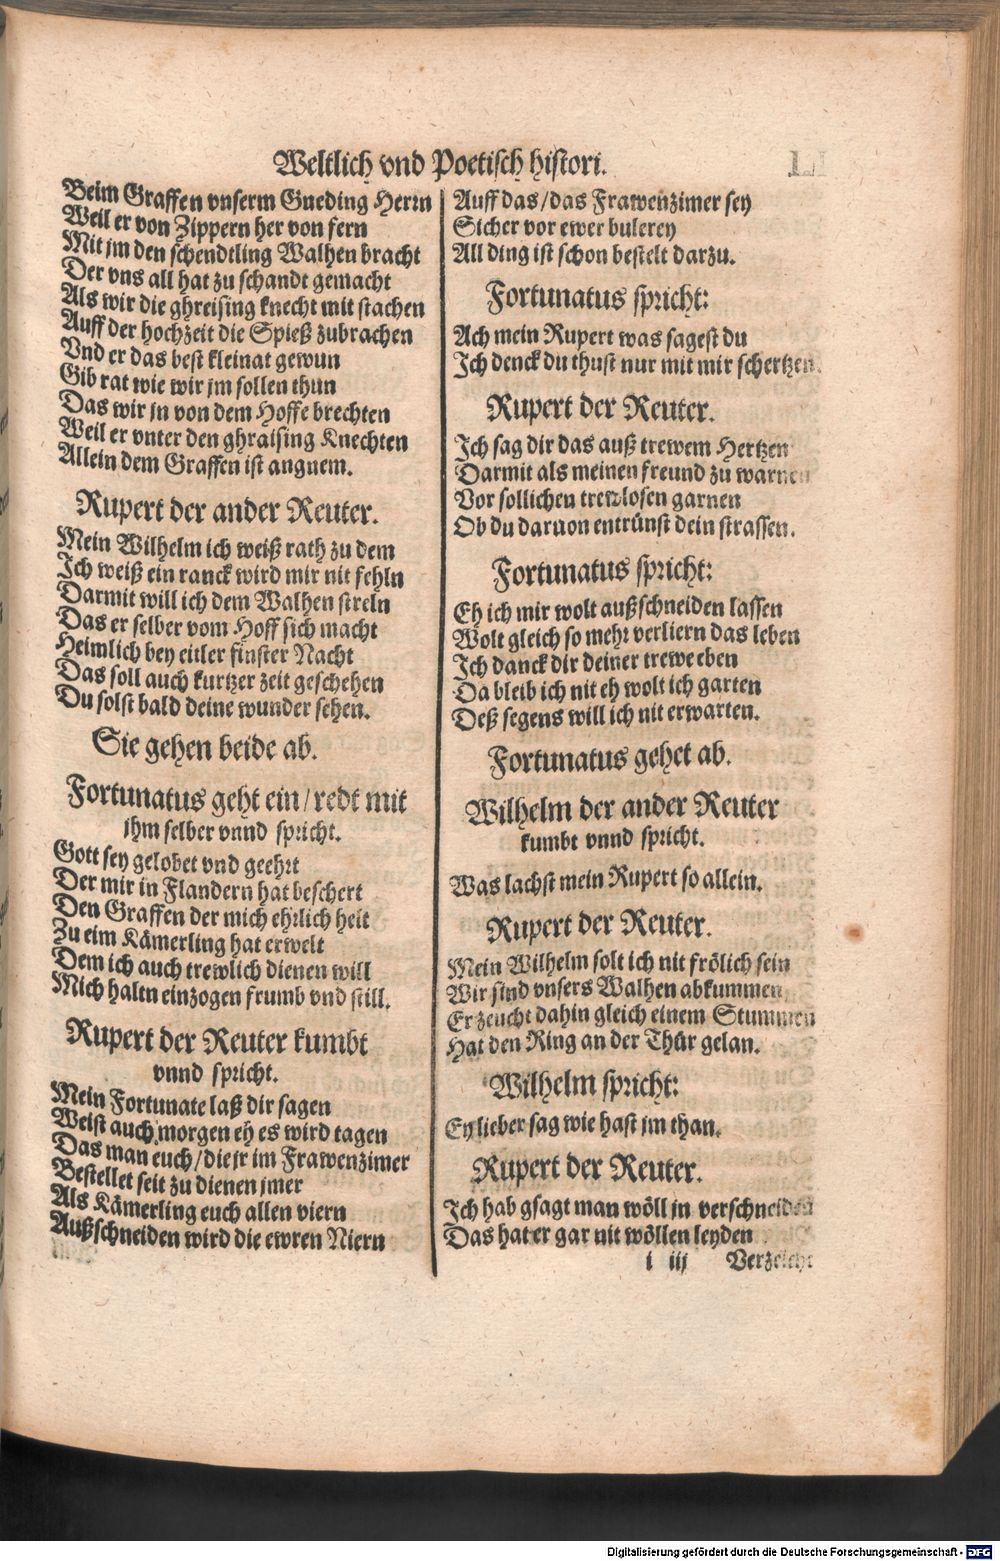 Weltlich vnd Poetisch histori.
LI
Beim Graffen vnserm Gneding Herrn
Weil er von Zippern her von fern
Mit jm den schendtling Walhen bracht
Der vns all hat zu schandt gemacht
Als wir die ghreising knecht mit stachen
Auff der hochzeit die Spieß zubrachen
Vnd er das best kleinat gewun
Gib rat wie wir jm sollen thun
Das wir jn von dem Hoffe brechten
Weil er vnter den ghraising Knechten
Allein dem Graffen ist angnem.
Rupert der ander Reuter.
Mein Wilhelm ich weiß rath zu dem
Ich weiß ein ranck wird mir nit fehln
Darmit will ich dem Walhen streln
Das er selber vom Hoff sich macht
Heimlich bey eitler finster Nacht
Das soll auch kurtzer zeit geschehen
Du solst bald deine wunder sehen.
Sie gehen beide ab.
Fortunatus geht ein/redt mit
ihm selber vnnd spricht.
Gott sey gelobet vnd geehrt
Der mir in Flandern hat beschert
Den Graffen der mich ehrlich helt
Zu eim Kämerling hat erwelt
Dem ich auch trewlich dienen will
Mich haltn einzogen frumb vnd still.
Rupert der Reuter kumbt
vnnd spricht.
Mein Fortunate laß dir sagen
Weist auch morgen eh es wird tagen
Das man euch/die jr im Frawenzimer
Bestellet seit zu dienen jmer
Als Kämerling euch allen viern
Außschneiden wird die ewren Niern
Auff das/das Frawenzimer sey
Sicher vor ewer bulerey
All ding ist schon bestelt darzu.
Fortunatus spricht:
Ach mein Rupert was sagest du
Ich denck du thust nur mit mir schertzen.
Rupert der Reuter.
Ich sag dir das auß trewem Hertzen
Darmit als meinen freund zu warnen
Vor sollichen trewlosen garnen
Ob du daruon entrünst dein strassen.
Fortunatus spricht:
Eh ich mir wolt außschneiden lassen
Wolt gleich so mehr verliern das leben
Ich danck dir deiner trewe eben
Da bleib ich nit eh wolt ich garten
Deß segens will ich nit erwarten.
Fortunatus gehet ab.
Wilhelm der ander Reuter
kumbt vnnd spricht.
Was lachst mein Rupert so allein.
Rupert der Reuter.
Mein Wilhelm solt ich nit frölich sein
Wir sind vnsers Walhen abkummen
Er zeucht dahin gleich einem Stummen
Hat den Ring an der Thür gelan.
Wilhelm spricht:
Ey lieber sag wie hast jm than.
Rupert der Reuter.
Ich hab gsagt man wöll jn verschneiden
Das hat er gar nit wöllen leyden
i iij Verzeicht
Digitalisierung gefördert durch die Deutsche Forschungsgemeinschaft - DFG